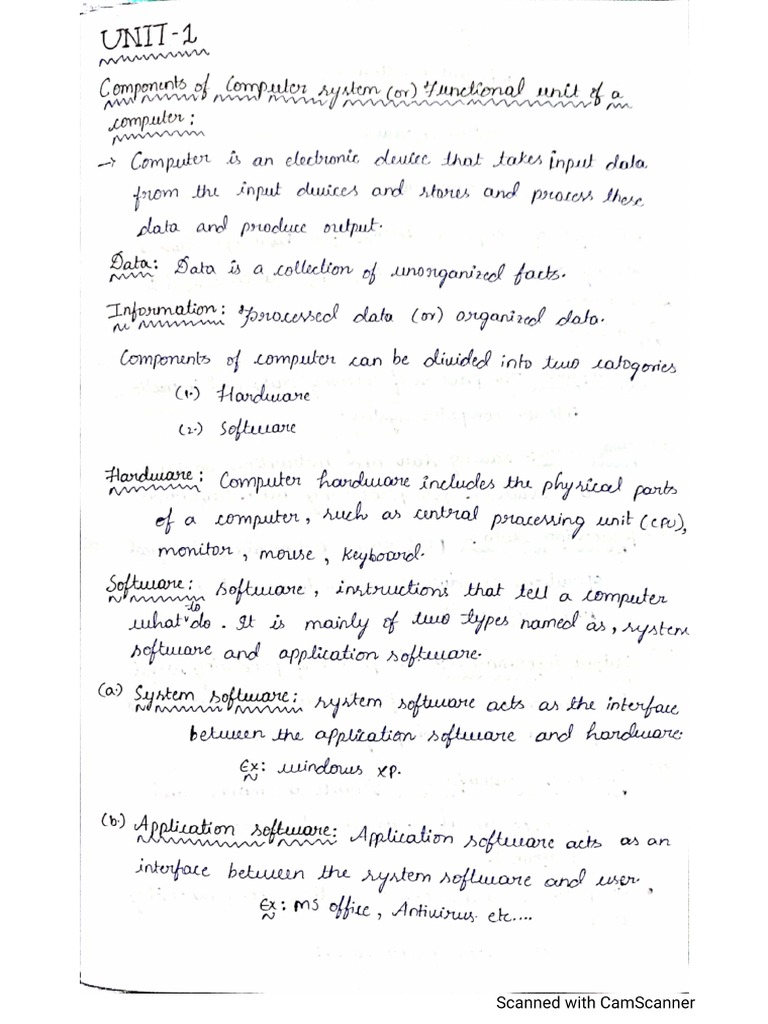 UNIT-1
Components of Computer system (or) Functional unit of a
computer:
→ Computer is an electronic device that takes input data
from the input devices and stores and process these
data and produce output.
Data: Data is a collection of unorganized facts.
Information: Processed data (or) organized data.
Components of computer can be divided into two catogories
(1.) Hardware
(2.) Software
Hardware: Computer hardware includes the physical parts
of a computer, such as central processing unit (CPU),
monitor, mouse, Keyboard.
Software: Software, instructions that tell a computer
what to do. It is mainly of two types named as, system
software and application software.
(a.) System software: system software acts as the interface
between the application software and hardware.
Ex: windows XP.
(b.) Application software: Application software acts as an
interface between the system software and user.
Ex: MS office, Antivirus etc....
Scanned with CamScanner